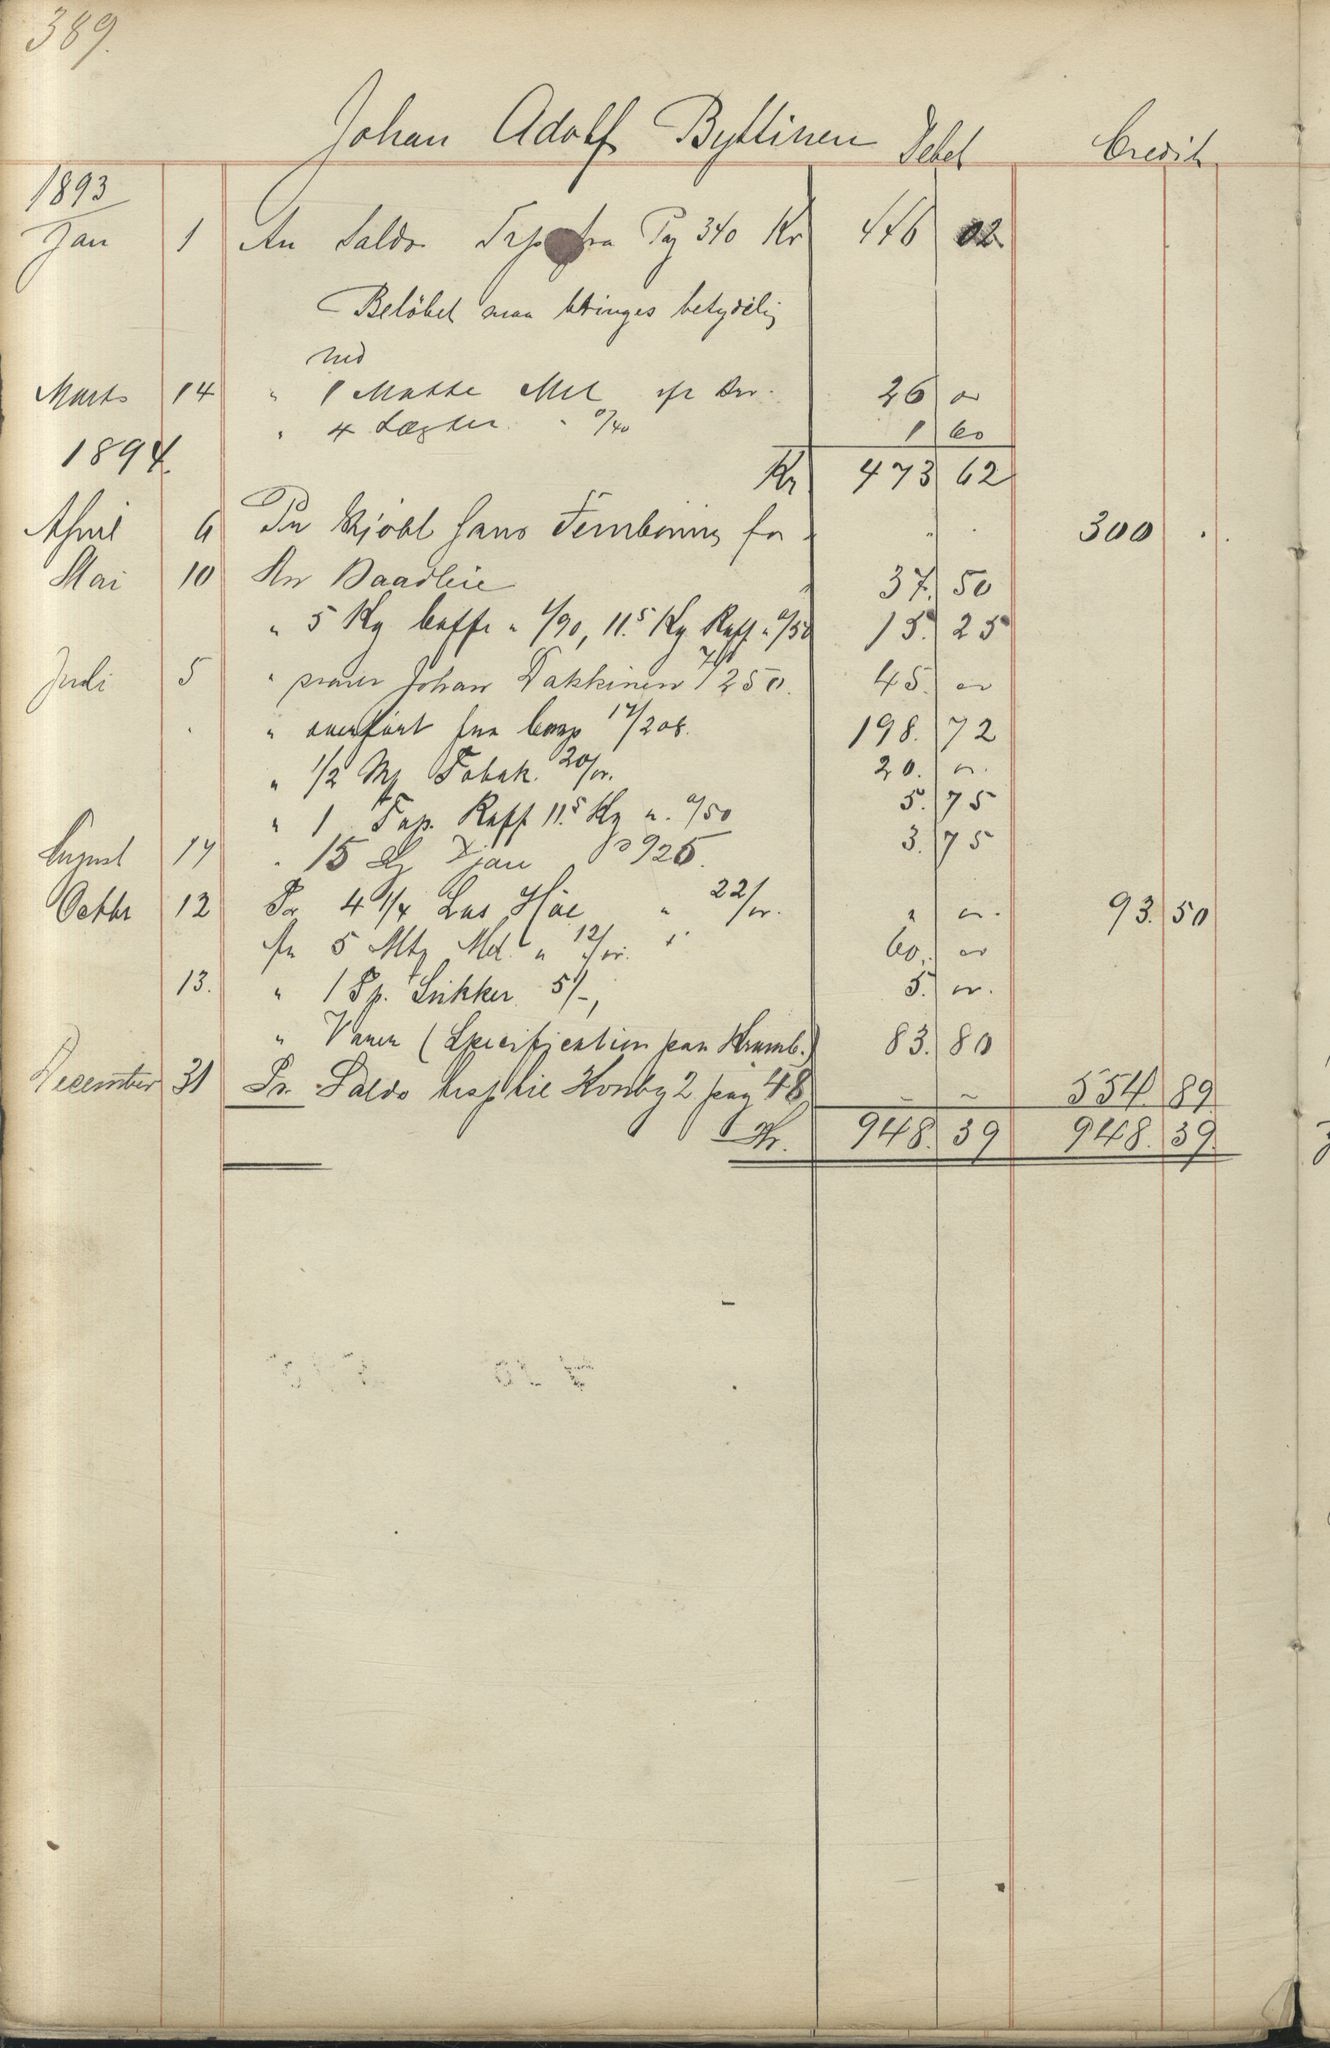 389.
Johan Adolf Byttinen Debet Credit
1893
Jan 1 An Saldo Trsp fra Pag 340 Kr 446 02
Belöbet maa bringes betydelig
ned
Marts 14 " 1 Matte Mel 26 "
" 4 Lægter " 0/40 1 60
1894.
Kr 473 62
April 6 Pr kjöbt hans Fembøring for " " 300 "
Mai 10 An Baadleie 37. 50
" 5 Kg Caffe " 1/90, 11.5 Kg Kaff " 0/50 15. 25
Juli 5 " Johan Takkinen 45. "
" " overført fra 17/208. 198. 72
" 1/2 Tobak. 20/". 20. "
" 1 Kaff 11.5 Kg a. 0/50 5. 75
August 14 " 15 Tjære 0 25. 3. 75
Octbr 12 Pr 4 1/4 Las Høe " 22/". " " 93. 50
An 5 Mtr Mel " 12/". 60. "
13. " 1 Tp. Sukker 5/-, 5. "
" Varer (Specification paa Kramb.) 83. 80
December 31 Pr. Saldo trsp til Hovbg 2 pag 48 - ~ 554. 89
Kr. 948. 39 948. 39.